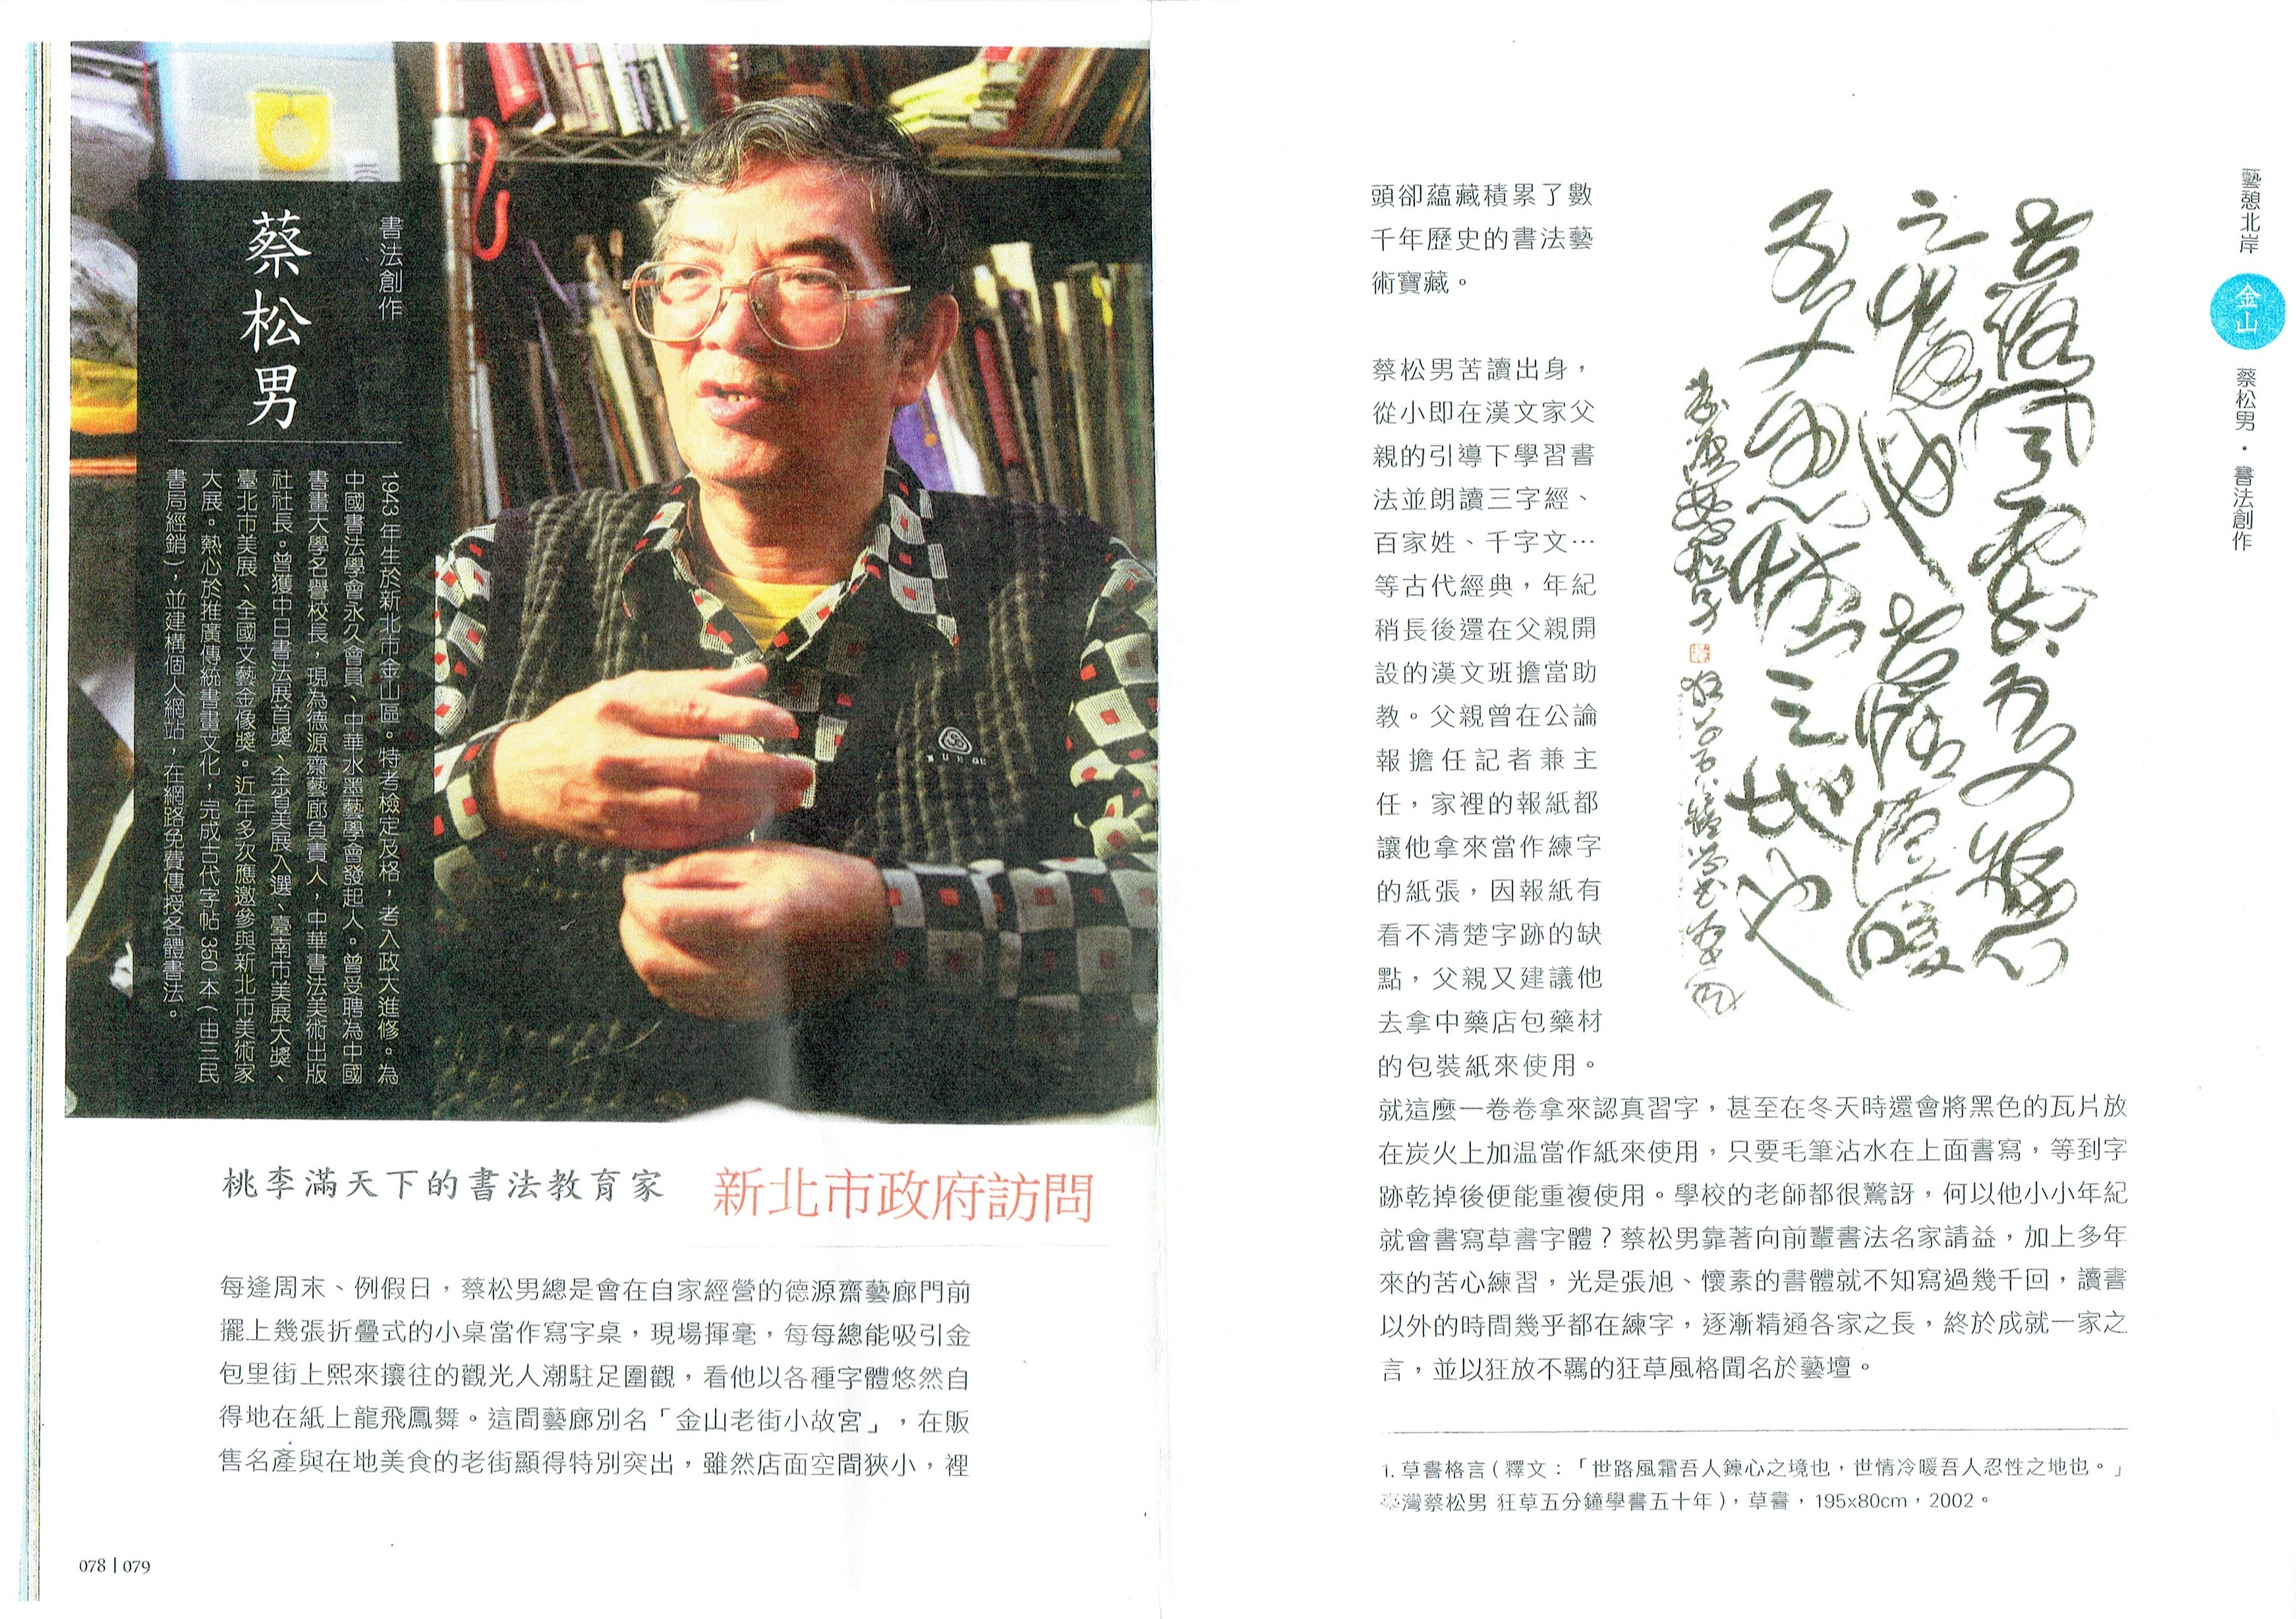 書法創作
蔡松男
1943 年生於新北市金山區。特考檢定及格，考入政大進修。為
中國書法學會永久會員、中華水墨藝學會發起人。曾受聘為中國
書畫大學名譽校長，現為德源齋藝廊負責人，中華書法美術出版
社社長。曾獲中日書法展首獎、全省美展入選、臺南市美展大獎、
臺北市美展、全國文藝金像獎。近年多次應邀參與新北市美術家
大展。熱心於推廣傳統書畫文化，完成古代字帖 350 本（由三民
書局經銷），並建構個人網站，在網路免費傳授各體書法。
桃李滿天下的書法教育家
新北市政府訪問
每逢周末、例假日，蔡松男總是會在自家經營的德源齋藝廊門前
擺上幾張折疊式的小桌當作寫字桌，現場揮毫，每每總能吸引金
包里街上熙來攘往的觀光人潮駐足圍觀，看他以各種字體悠然自
得地在紙上龍飛鳳舞。這間藝廊別名「金山老街小故宮」，在販
售名產與在地美食的老街顯得特別突出，雖然店面空間狹小，裡
078 | 079
頭卻蘊藏積累了數
千年歷史的書法藝
術寶藏。
蔡松男苦讀出身，
從小即在漢文家父
親的引導下學習書
法並朗讀三字經、
百家姓、千字文…
等古代經典，年紀
稍長後還在父親開
設的漢文班擔當助
教。父親曾在公論
報擔任記者兼主
任，家裡的報紙都
讓他拿來當作練字
的紙張，因報紙有
看不清楚字跡的缺
點，父親又建議他
去拿中藥店包藥材
的包裝紙來使用。
就這麼一卷卷拿來認真習字，甚至在冬天時還會將黑色的瓦片放
在炭火上加温當作紙來使用，只要毛筆沾水在上面書寫，等到字
跡乾掉後便能重複使用。學校的老師都很驚訝，何以他小小年紀
就會書寫草書字體？蔡松男靠著向前輩書法名家請益，加上多年
來的苦心練習，光是張旭、懷素的書體就不知寫過幾千回，讀書
以外的時間幾乎都在練字，逐漸精通各家之長，終於成就一家之
言，並以狂放不羈的狂草風格聞名於藝壇。
1. 草書格言（釋文：「世路風霜吾人鍊心之境也，世情冷暖吾人忍性之地也。」
臺灣蔡松男 狂草五分鐘學書五十年），草書，195x80cm，2002。
藝憩北岸
金山
蔡松男・書法創作